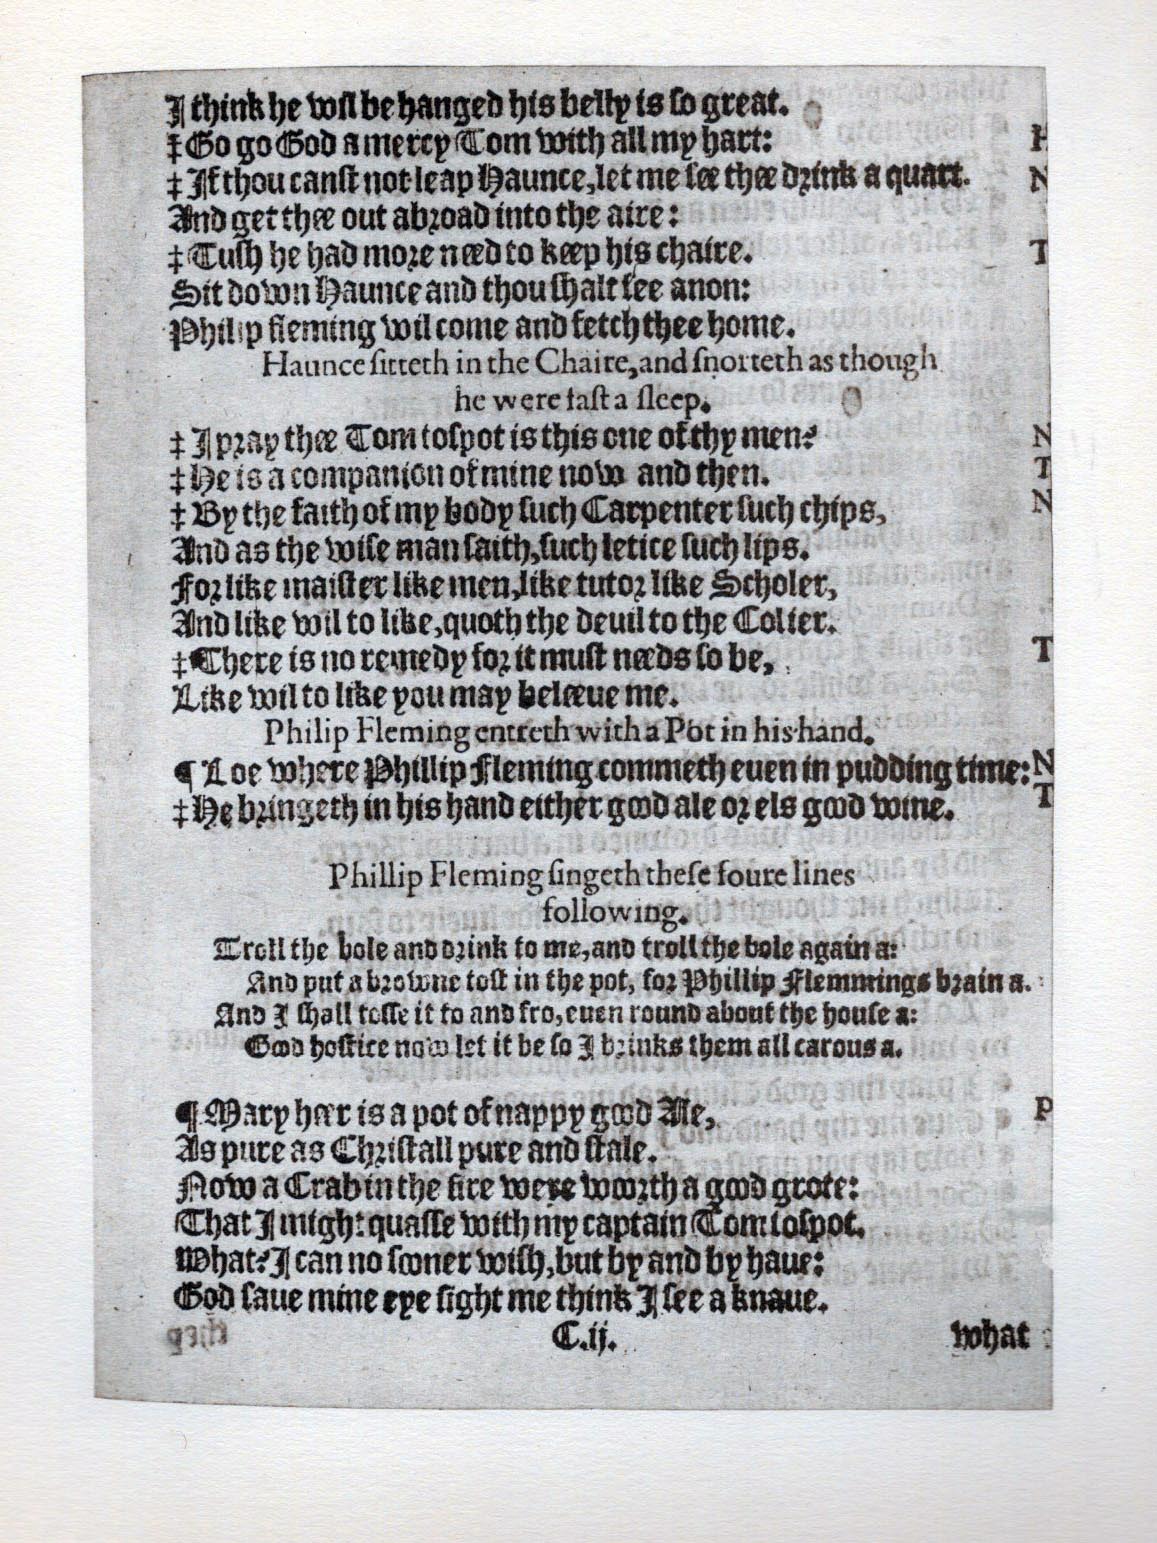 I think he wil be hanged his belly is so great.
‡ Go go God a mercy Tom with all my hart: H
‡ If thou canst not leap Haunce, let me see thee drink a quart. N
And get thee out abroad into the aire:
‡ Tush he had more need to keep his chaire. T
Sit down Haunce and thou shalt see anon:
Philip fleming wil come and fetch thee home.
Haunce sitteth in the Chaire, and snorteth as though
he were fast a sleep.
‡ I pray thee Tom tospot is this one of thy men? N
‡ He is a companion of mine now and then. T
‡ By the faith of my body such Carpenter such chips, N
And as the wise man saith, such letice such lips.
For like maister like men, like tutor like Scholer,
And like wil to like, quoth the deuil to the Colier.
‡ There is no remedy for it must needs so be, T
Like wil to like you may beleeue me.
Philip Fleming entreth with a Pot in his hand.
¶ Loe where Phillip Fleming commeth euen in pudding time: N
‡ He bringeth in his hand either good ale or els good wine. T
Phillip Fleming singeth these foure lines
following.
Troll the bole and drink to me, and troll the bole again a:
And put a browne tost in the pot, for Phillip Flemmings brain a.
And I shall tosse it to and fro, euen round about the house a:
Good hostice now let it be so I brinks them all carous a.
¶ Mary heer is a pot of nappy good Ale, P
As pure as Christall pure and stale.
Now a Crab in the fire were woorth a good grote:
That I might quaffe with my captain Tom tospot.
What? I can no sooner wish, but by and by haue:
God saue mine eye sight me think I see a knaue.
C.ij. what